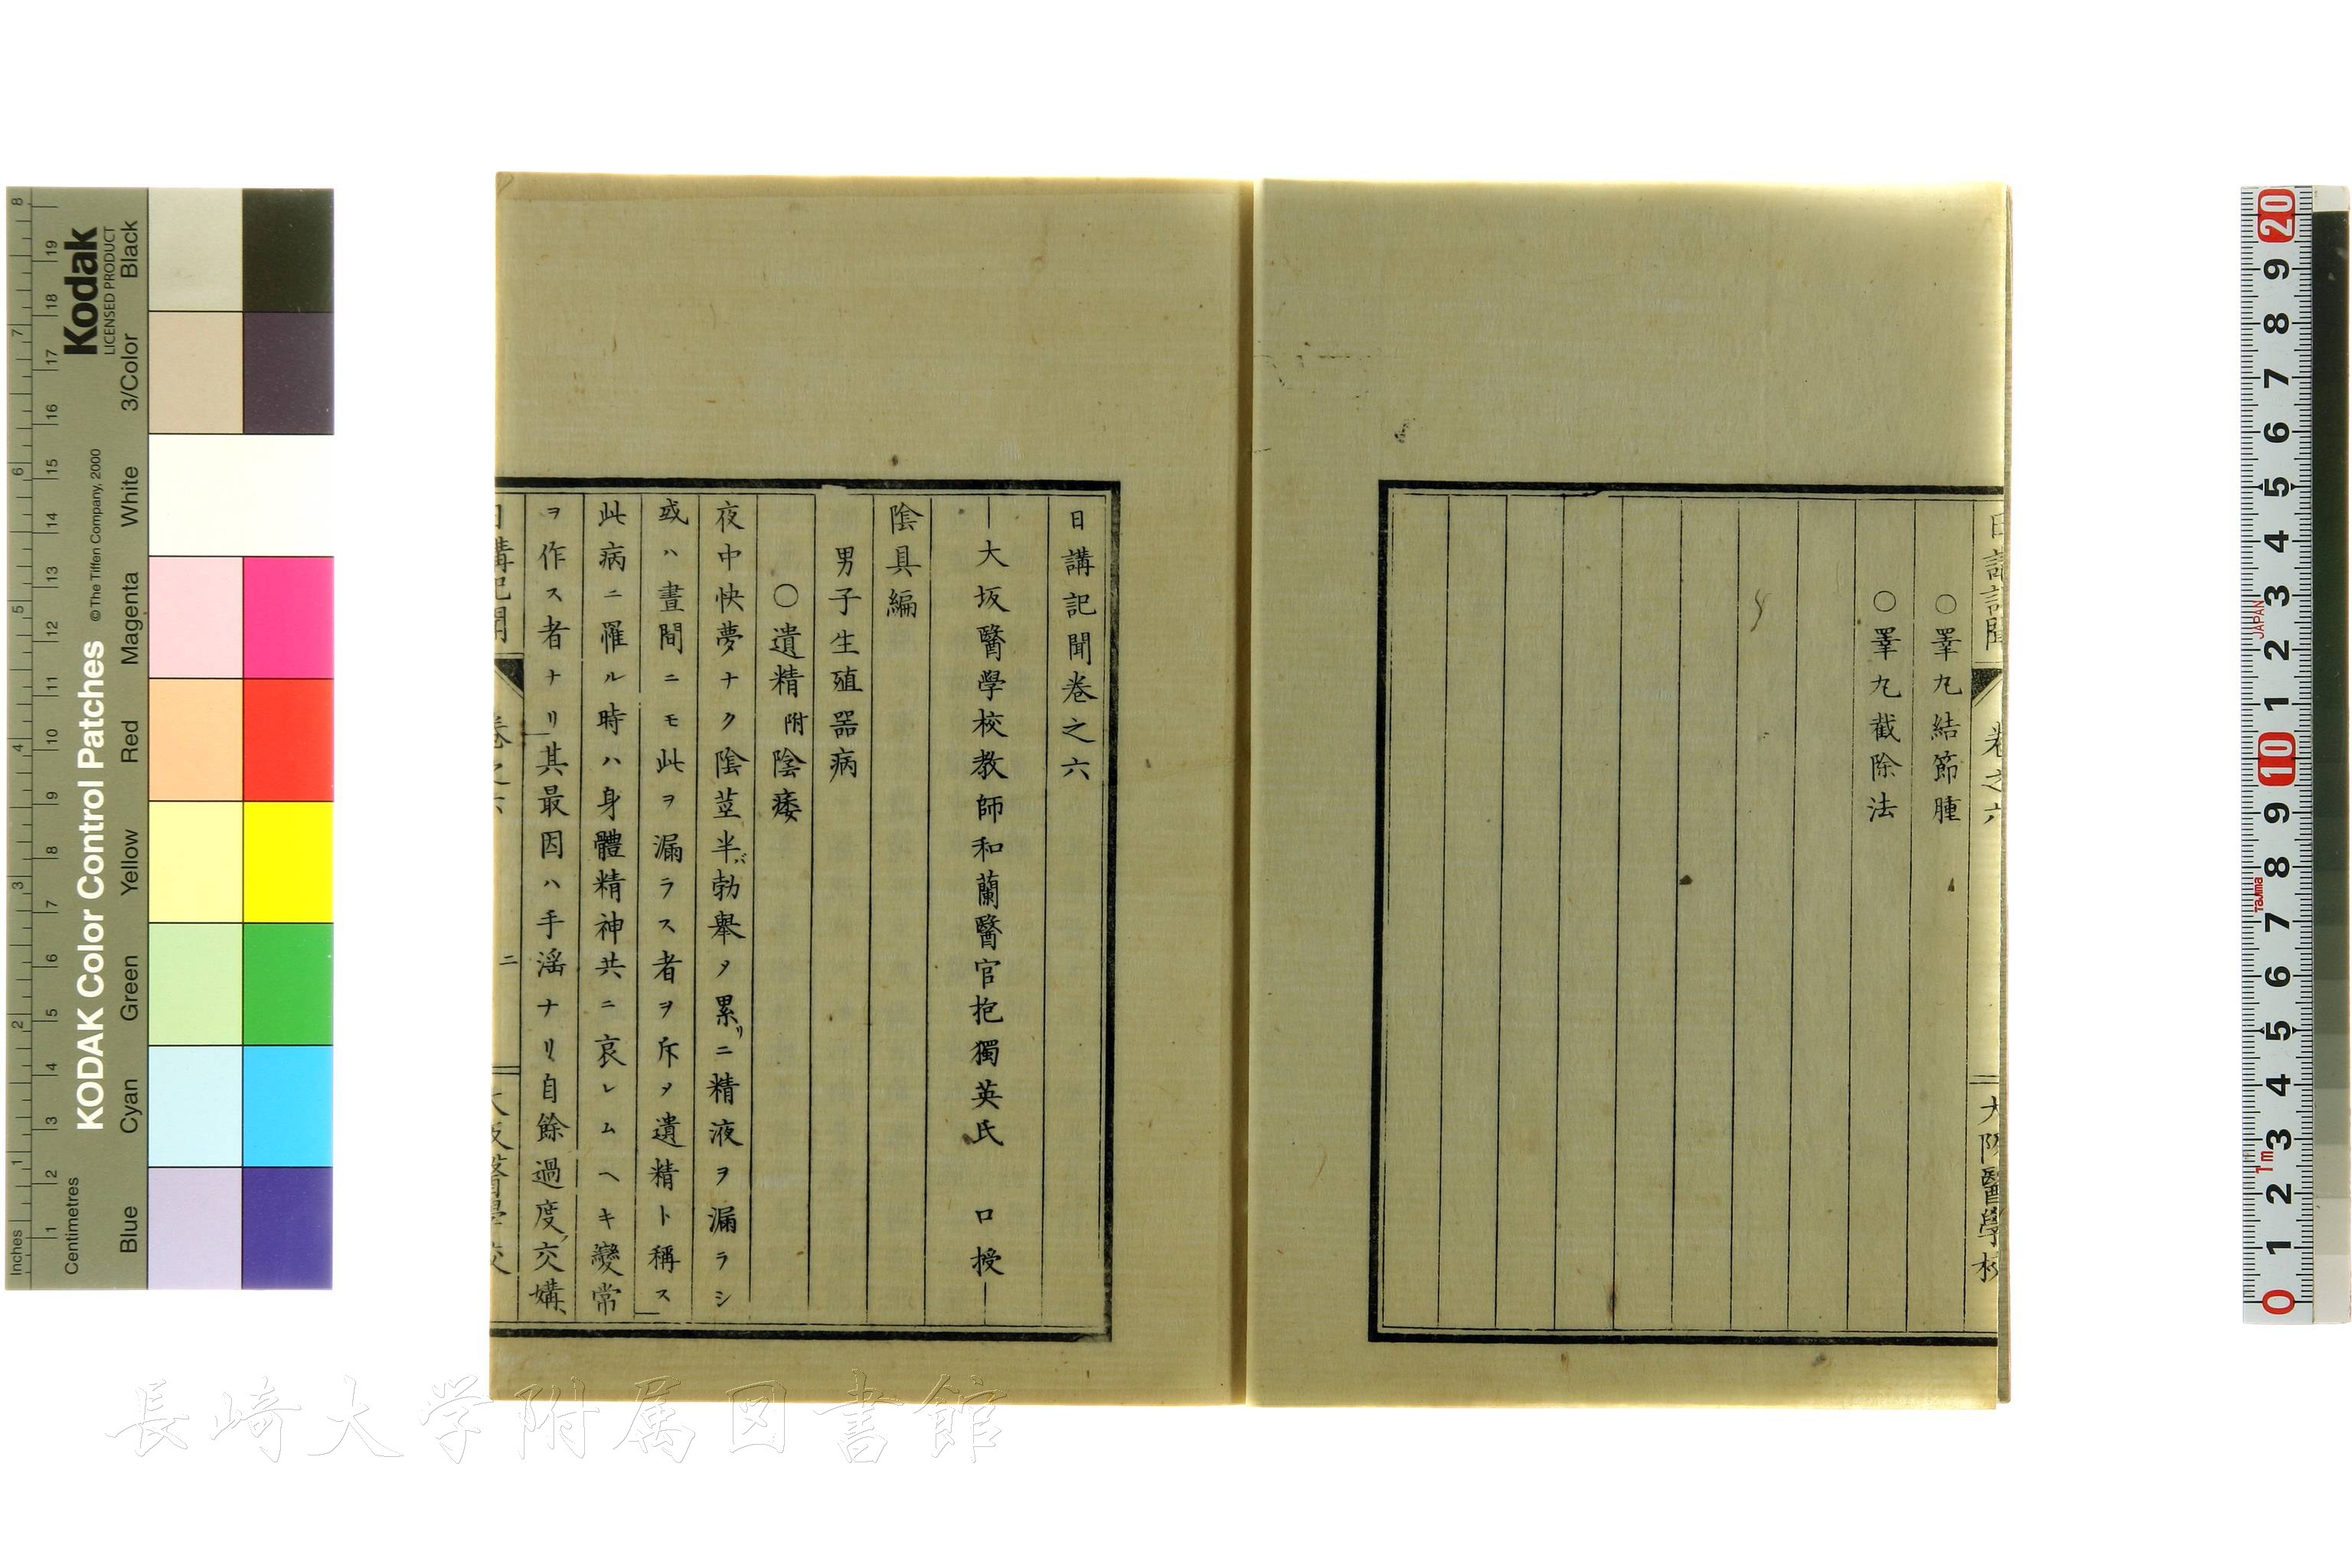 日講記聞
卷之六
大阪醫學校
○睪丸結節腫
○睪丸截除法
日講記聞卷之六
大坂醫學校教師和蘭醫官抱獨英氏　口授
陰具編
男子生殖噐病
○遺精附陰痿
夜中快夢ナク陰莖半バ勃舉〆累リニ精液ヲ漏ラシ
或ハ晝間ニモ此ヲ漏ラス者ヲ斥〆遺精ト稱ス
此病ニ罹ル時ハ身體精神共ニ衰レムヘキ變常
ヲ作ス者ナリ其最因ハ手淫ナリ自餘過度ノ交媾、
日講記聞
卷之六
二
大阪醫學校
Kodak
LICENSED PRODUCT
KODAK Color Control Patches
© The Tiffen Company, 2000
Inches
1 2 3 4 5 6 7 8
Centimetres
1 2 3 4 5 6 7 8 9 10 11 12 13 14 15 16 17 18 19
Blue Cyan Green Yellow Red Magenta White 3/Color Black
0 1 2 3 4 5 6 7 8 9 10 1 2 3 4 5 6 7 8 9 20
1m
Tajima
JAPAN
長崎大学附属図書館